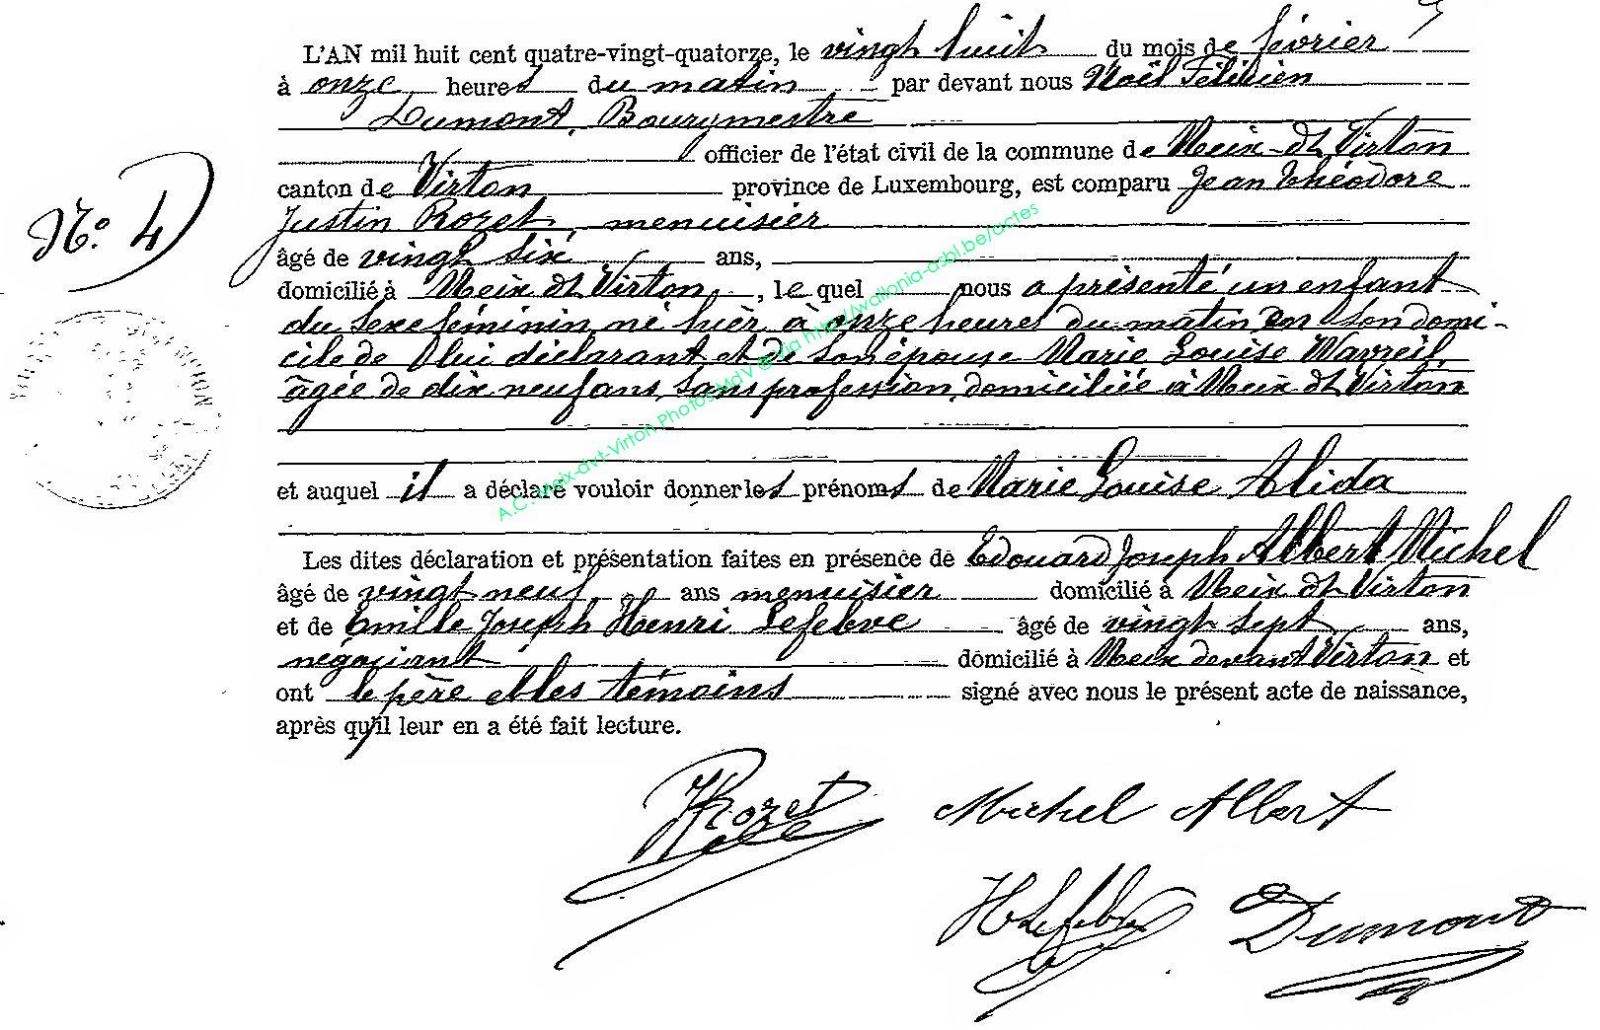 L'AN mil huit cent quatre-vingt-quatorze, le vingt huit du mois de février
à onze heures du matin par devant nous Noël Félicien
Dumont, Bourgmestre
officier de l'état civil de la commune de Meix-dt Virton
canton de Virton province de Luxembourg, est comparu Jean Théodore
Justin Rozet, menuisier
N° 4
âgé de vingt six ans,
domicilié à Meix dt Virton, le quel nous a présenté un enfant
du sexe féminin, né hier à onze heures du matin en son domi-
cile de lui déclarant et de son épouse Marie Louise Wavreil,
âgée de dix neuf ans, sans profession, domiciliée à Meix dt Virton
et auquel il a déclaré vouloir donner les prénoms de Marie Louise Alida
Les dites déclaration et présentation faites en présence de Edouard Joseph Albert Michel
âgé de vingt neuf ans menuisier domicilié à Meix dt Virton
et de Emille Joseph Henri Lefebve âgé de vingt sept ans,
négociant domicilié à Meix devant Virton et
ont le père et les témoins signé avec nous le présent acte de naissance,
après qu'il leur en a été fait lecture.
JRozet Michel Albert
HLefebve Dumont
A.C. Meix-dvt-Virton Photos MdV @ via http://wallonia-asbl.be/actes